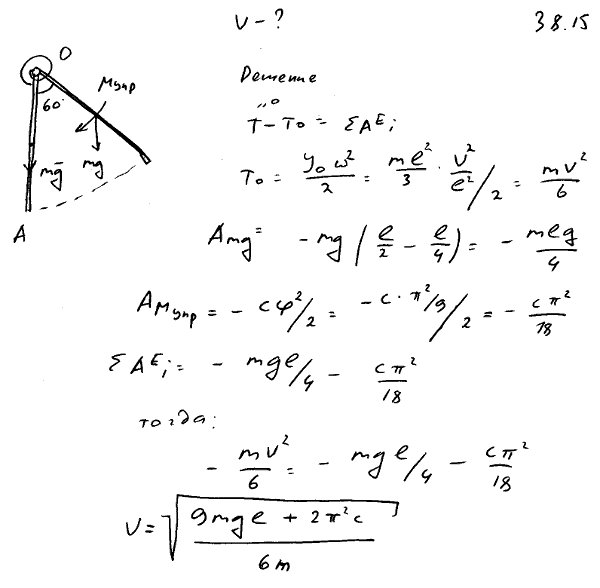 V - ?
38.15
O
60°
Mупр
mg̅
mg
A
Решение
T - T₀ = ΣAᴱᵢ
T₀ = Y₀ω²/2 = mℓ²/3 · V²/ℓ² / 2 = mV²/6
Amg = - mg (ℓ/2 - ℓ/4) = - mℓg/4
AMупр = - cφ²/2 = - c · π²/9 / 2 = - cπ²/18
ΣAᴱᵢ = - mgℓ/4 - cπ²/18
тогда:
- mV²/6 = - mgℓ/4 - cπ²/18
V = √(9mgℓ + 2π²c / 6m)